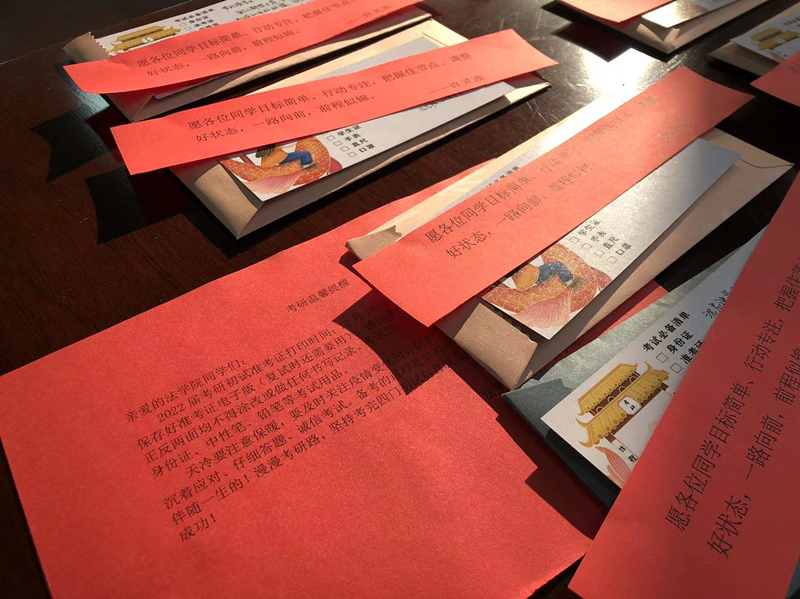 考试必备清单
身份证
愿各位同学目标简单、行动专注，把握住节点、调整
好状态，一路向前，前程似锦。
愿各位同学目标简单、行动专注，把握住节点、调整
好状态，一路向前，前程似锦。
学生证
手表
直尺
口罩
愿各位同学目标简单、行动专注
好状态，一路向前，前程似锦
学生证
手表
直尺
口罩
考研温馨提醒
亲爱的法学院同学们：
2022 届考研初试准考证打印时间：
保存好准考证电子版（复试时还需要用）
正反两面均不得涂改或做任何书写记录
身份证、中性笔、铅笔等考试用品。
天冷要注意保暖，要及时关注疫情变
沉着应对、仔细答题、诚信考试。备考的
伴随一生的！漫漫考研路，坚持考完四门
成功！
考试必备清单
身份证
准考证
愿各位同学目标简单、行动专注，把握住节
好状态，一路向前，前程似锦